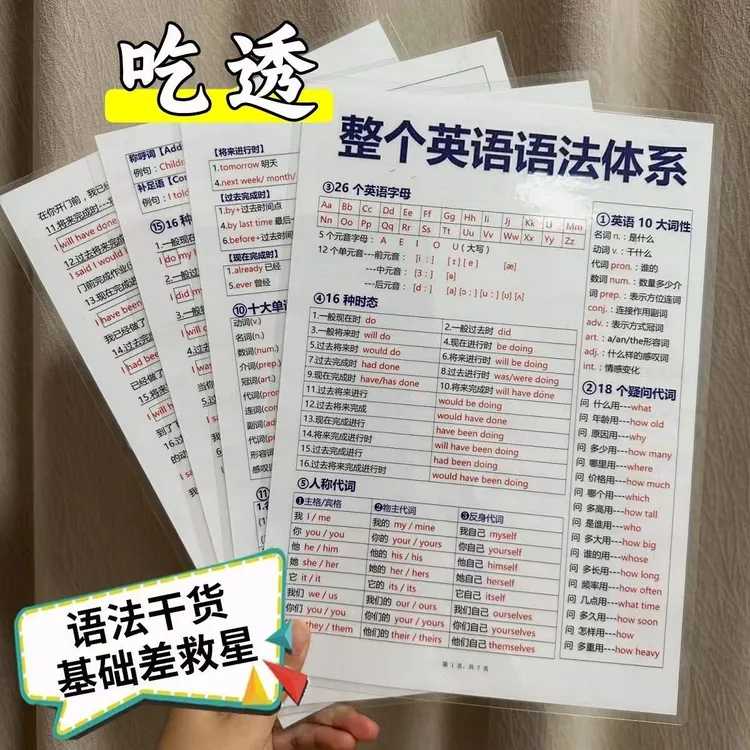 吃透
整个英语语法体系
③26 个英语字母
Aa Bb Cc Dd Ee Ff Gg Hh Ii Jj Kk Ll Mm
Nn Oo Pp Qq Rr Ss Tt Uu Vv Ww Xx Yy Zz
5 个元音字母: A E I O U (大写)
12 个单元音---前元音 [i:] [ɪ] [e] [æ]
---中元音 [ə]
---后元音
④16 种时态
1.一般现在时 do
2.一般过去时 did
3.一般将来时 will do
4.现在进行时 be doing
5.过去将来时 would do
6.将来进行时 will be doing
7.过去完成时 had done
8.过去进行时 was/were doing
9.现在完成时 have/has done
10.将来完成时 will have done
11.过去将来进行 would be doing
12.过去将来完成 would have done
13.现在完成进行 have been doing
14.将来完成进行时 will have been doing
15.过去完成进行 had been doing
16.过去将来完成进行时 would have been doing
⑤人称代词
❶主格/宾格 ❷物主代词 ❸反身代词
我 I / me 我的 my / mine 我自己 myself
你 you / you 你的 your / yours 你自己 yourself
他 he / him 他的 his / his 他自己 himself
她 she / her 她的 her / hers 她自己 herself
它 it / it 它的 its / its 它自己 itself
我们 we / us 我们的 our / ours 我们自己 ourselves
你们 you / you 你们的 your / yours 你们自己 yourselves
they / them 他们的 their / theirs 他们自己 themselves
第 1 页,共 7 页
①英语 10 大词性
名词 n.：是什么
动词 v.：干什么
代词 pron.：谁的
数词 num.：数量多少介
词 prep.：表示方位连词
conj.：连接作用副词
adv.：表示方式冠词
art.：a/an/the形容词
adj.：什么样的感叹词
int.：情感变化
②18 个疑问代词
问 什么用---what
问 年龄用---how old
问 原因用---why
问 多少用---how many
问 哪里用---where
问 价格用---how much
问 哪个用---which
问 多高用---how tall
问 是谁用---who
问 多大用---how big
问 谁的用---whose
问 多长用---how long
问 频率用---how often
问 几点用---what time
问 多久用---how soon
问 怎样用---how
问 多重用---how heavy
【将来进行时】
1.tomorrow 明天
4.next week/ month/
【过去完成时】
1.by+过去时间点
4.by last time 最后一
6.before+过去时间
【现在完成时】
1.already 已经
5.ever 曾经
⑩十大单词
动词(v.)
名词(n.)
数词(num.)
介词(prep.)
冠词(art.)
代词(pron
连词(con
副词(ad
代词(p
形容词
感叹词
⑪
称呼词【Add
例句：Childr
补足语【Con
例句：I told
⑮16 种
1.一般现在
I do my
2.一般过
I did m
3.一般将
I will
在你开门前，我已经
11.将来完成时---
I will have done
12.过去将来完成
I said I would
门前完成作业
13.现在完成进
I have been
我已经做了
14.过去完
I had been
已经做
15.将来完
I will h
到了
16.过
的动
I sa
语法干货
基础差救星